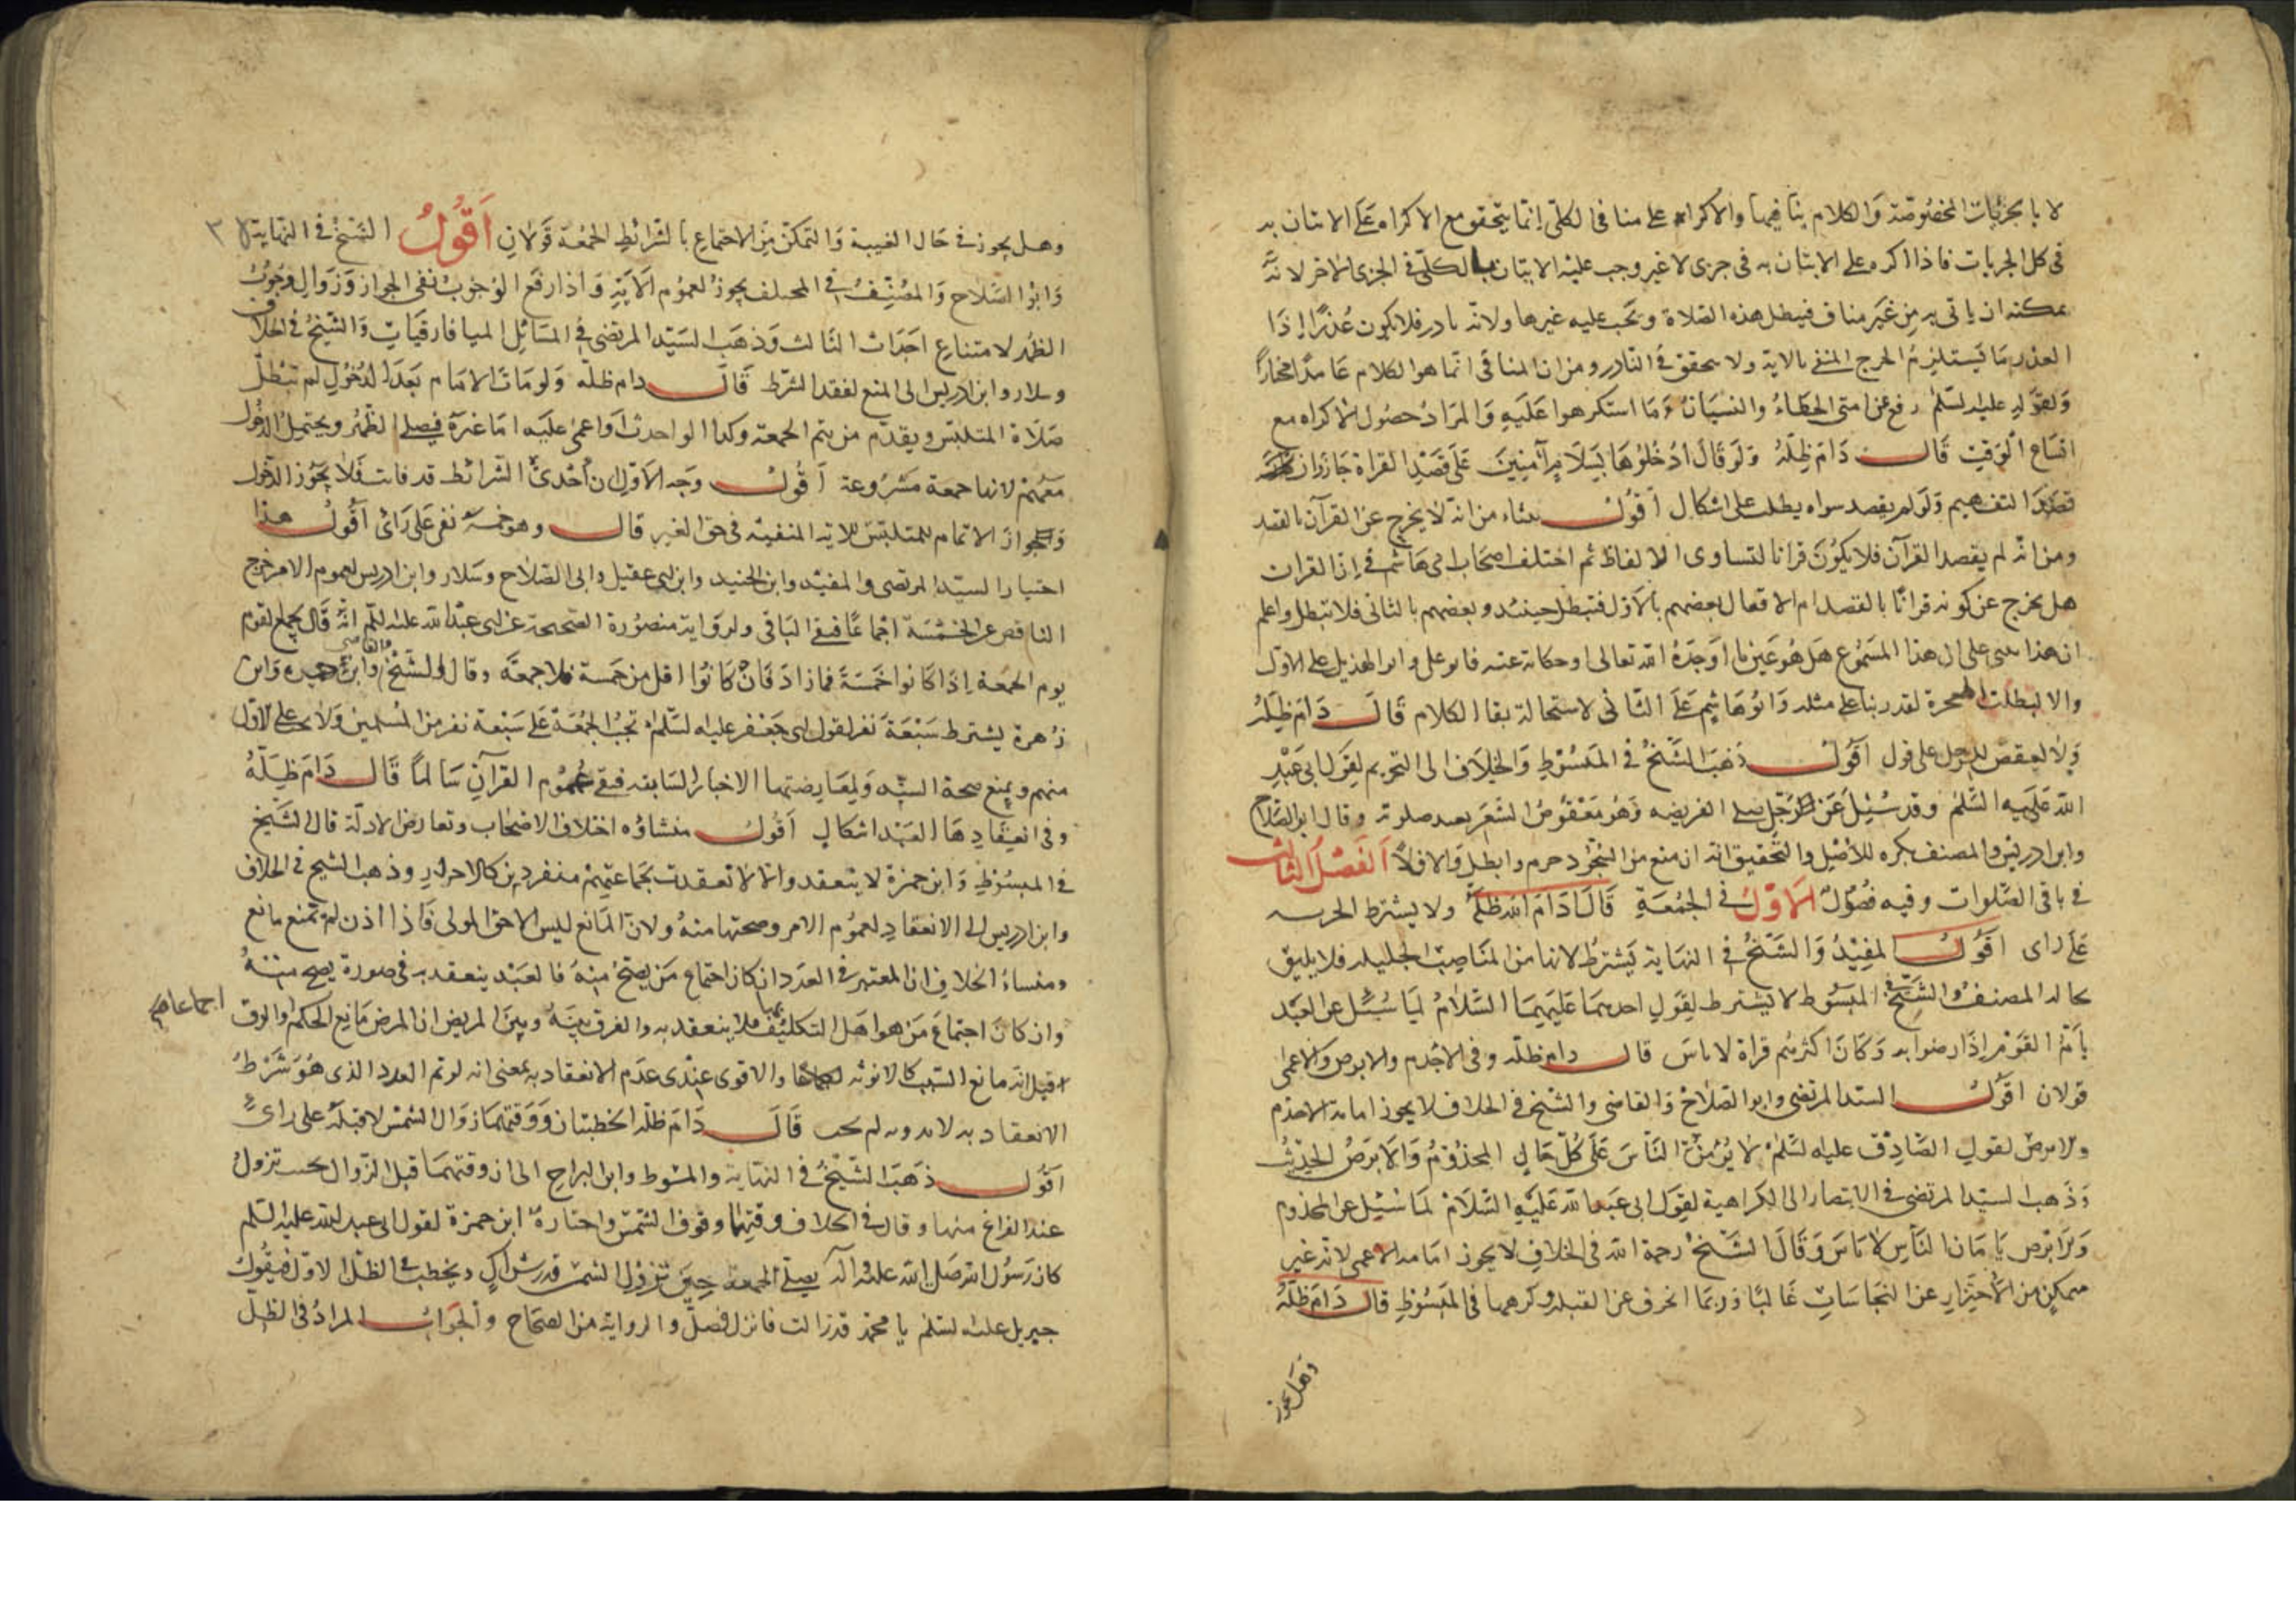 لا بالجزئيات المخصوصة والكلام ينافيها والاكراه على منافى الكلى انما يتحقق مع الاكراه على الاتيان به
فى كل الجزيات فاذا اكره على الاتيان به فى جزى لا غير وجب عليه الاتيان بالكلى فى الجزى الاخر لانه
يمكنه ان ياتى به من غير مناف فيبطل هذه الصلاة ويجب عليه غيرها ولانه نادر فلا يكون عذرا اذا
العذر ما يستلزم الحرج المنفى بالاية ولا يتحقق فى النادر ومن ان المنافى انما هو الكلام عامدا مختارا
ولقوله عليه السلم رفع عن امتى الخطاء والنسيان وما استكرهوا عليه والمراد حصول الاكراه مع
اتساع الوقت قال دام ظله ولو قال ادخلوها بسلام آمنين على قصد القراة جاز وان
قصد التفهيم ولو لم يقصد سواه بطلت على اشكال اقول منشاه من انه لا يخرج عن القرآن بالقصد
ومن انه لم يقصد القرآن فلا يكون قرانا لتساوى الالفاظ ثم اختلف اصحاب ابى هاشم فى ان القران
هل يخرج عن كونه قرانا بالقصد ام لا فقال بعضهم بالاول فتبطل حينئذ وبعضهم بالثانى فلا تبطل واعلم
ان هذا يبنى على ان هذا المسموع هل هو عين ما اوجده الله تعالى او حكاية عنه فابو على وابو الهذيل على الاول
والا لبطلت المعجزة لقدرتنا على مثله وابو هاشم على الثانى لاستحالة بقا الكلام قال دام ظله
ولا لعقص للرجل على قول اقول ذهب الشيخ فى المبسوط والخلاف الى التحريم لقول ابى عبد
الله عليه السلم وقد سئل عن الرجل يصلى الفريضه وهو معقوص الشعر يعيد صلوته وقال ابو الصلاح
وابن ادريس والمصنف يكره للاصل والتحقيق انه ان منع من السجود حرم وابطل والا فلا الفصل الثالث
فى باقى الصلوات وفيه فصول الاول فى الجمعة قال ادام الله ظله ولا يشترط الحريه
على راى اقول المفيد والشيخ فى النهاية يشترط لانها من المناصب الجليله فلا يليق
بحاله المصنف والشيخ فى المبسوط لا يشترط لقول احدهما عليهما السلام لما سئل عن العبد
يام القوم اذا رضوا به وكان اكثرهم قراة لا باس قال دام ظله وفى الاجذم والابرص والاعمى
قولان اقول السيد المرتضى وابو الصلاح والقاضى والشيخ فى الخلاف لا يجوز امامة الاجذم
والابرص لقول الصادق عليه السلم لا يؤمن الناس على كل حال المجذوم والابرص الحديث
وذهب السيد المرتضى فى الانتصار الى الكراهية لقول ابى عبد الله عليه السلام لما سئل عن المجذوم
والابرص يامان الناس لا باس وقال الشيخ رحمة الله فى الخلاف لا يجوز امامة الاعمى لانه غير
متمكن من الاحتراز عن النجاسات غالبا وربما انحرف عن القبلة وكرهها فى المبسوط قال دام ظله
وهل يجوز
وهل يجوز فى حال الغيبة والتمكن من الاجتماع بالشرائط الجمعة قولان اقول الشيخ فى النهاية
وابو الصلاح والمصنف فى المختلف يجوز لعموم الاية واذا رفع الوجوب نفى الجواز وزوال وجوب
الظهر لامتناع احداث الثالث وذهب السيد المرتضى فى المسائل الميافارقيات والشيخ فى الخلاف
وسلار وابن ادريس الى المنع لفقد الشرط قال دام ظله ولو مات الامام بعد الدخول لم تبطل
صلاة المتلبس ويقدم من يتم الجمعة وكذا لو احدث او اغمى عليه اما غيره فيصلى الظهر ويحتمل الدخول
معهم لانها جمعة مشروعة اقول وجه الاول ان احدى الشرائط قد فاتت فلا يجوز الدخول
وجواز الاتمام للمتلبس للاية المنفية فى حق الغير قال وهو خمسة نفر على راى اقول هذا
اختيار السيد المرتضى والمفيد وابن الجنيد وابن ابى عقيل وابى الصلاح وسلار وابن ادريس لعموم الامر خرج
الناقص عن الخمسة اجماعا فبقى الباقى ولرواية منصور الصحيحة عن ابى عبد الله عليه السلم انه قال يجمع القوم
يوم الجمعة اذا كانوا خمسة فما زاد فان كانوا اقل من خمسة فلا جمعة وقال الشيخ والقاضى وابن حمزه وابن
زهرة يشترط سبعة نفر لقول ابى جعفر عليه السلام تجب الجمعة على سبعة نفر من المسلمين ولا يجب على الاول
منهم ويمنع صحة السند ولمعارضتها الاخبار السابقه فبقى عموم القرآن سالما قال دام ظله
وفى انعقادها بالعبد اشكال اقول منشاؤه اختلاف الاصحاب وتعارض الادلة قال الشيخ
فى المبسوط وابن حمزة لا ينعقد والا لانعقدت بجماعتهم منفردين كالاحرار وذهب الشيخ فى الخلاف
وابن ادريس الى الانعقاد لعموم الامر وصحتها منه ولان المانع ليس الا حق المولى فاذا اذن له لم يمنع مانع
ومنساء الخلاف ان المعتبر فى العدد ان كان اجتماع من يصح منه فالعبد ينعقد به فى صورة يصح منه
وان كان اجتماع من هو اهل التكليف بها فلا ينعقد به والفرق بينه وبين المريض ان المرض مانع الحكم والرق
اجماعا هى
اقبل انه مانع السبب كالانوثه والاقوى عندى عدم الانعقاد به بمعنى انه لو تم العدد الذى هو شرط
الانعقاد به لا بدونه لم يجب قال دام ظله الخطبتان ووقتهما زوال الشمس لا قبله على راى
اقول ذهب الشيخ فى النهاية والمبسوط وابن البراج الى ان وقتهما قبل الزوال بحيث تزول
عند الفراغ منها وقال فى الخلاف وقتها وقوف الشمس واختاره ابن حمزة لقول ابى عبد الله عليه السلم
كان رسول الله صلى الله عليه واله يصلى الجمعة حين تزول الشمس قدر شراك ويخطب فى الظل الاول فيقول
جبريل عليه السلم يا محمد قد زالت فانزل فصل والرواية من الصحاح والجواب المراد فى الظل